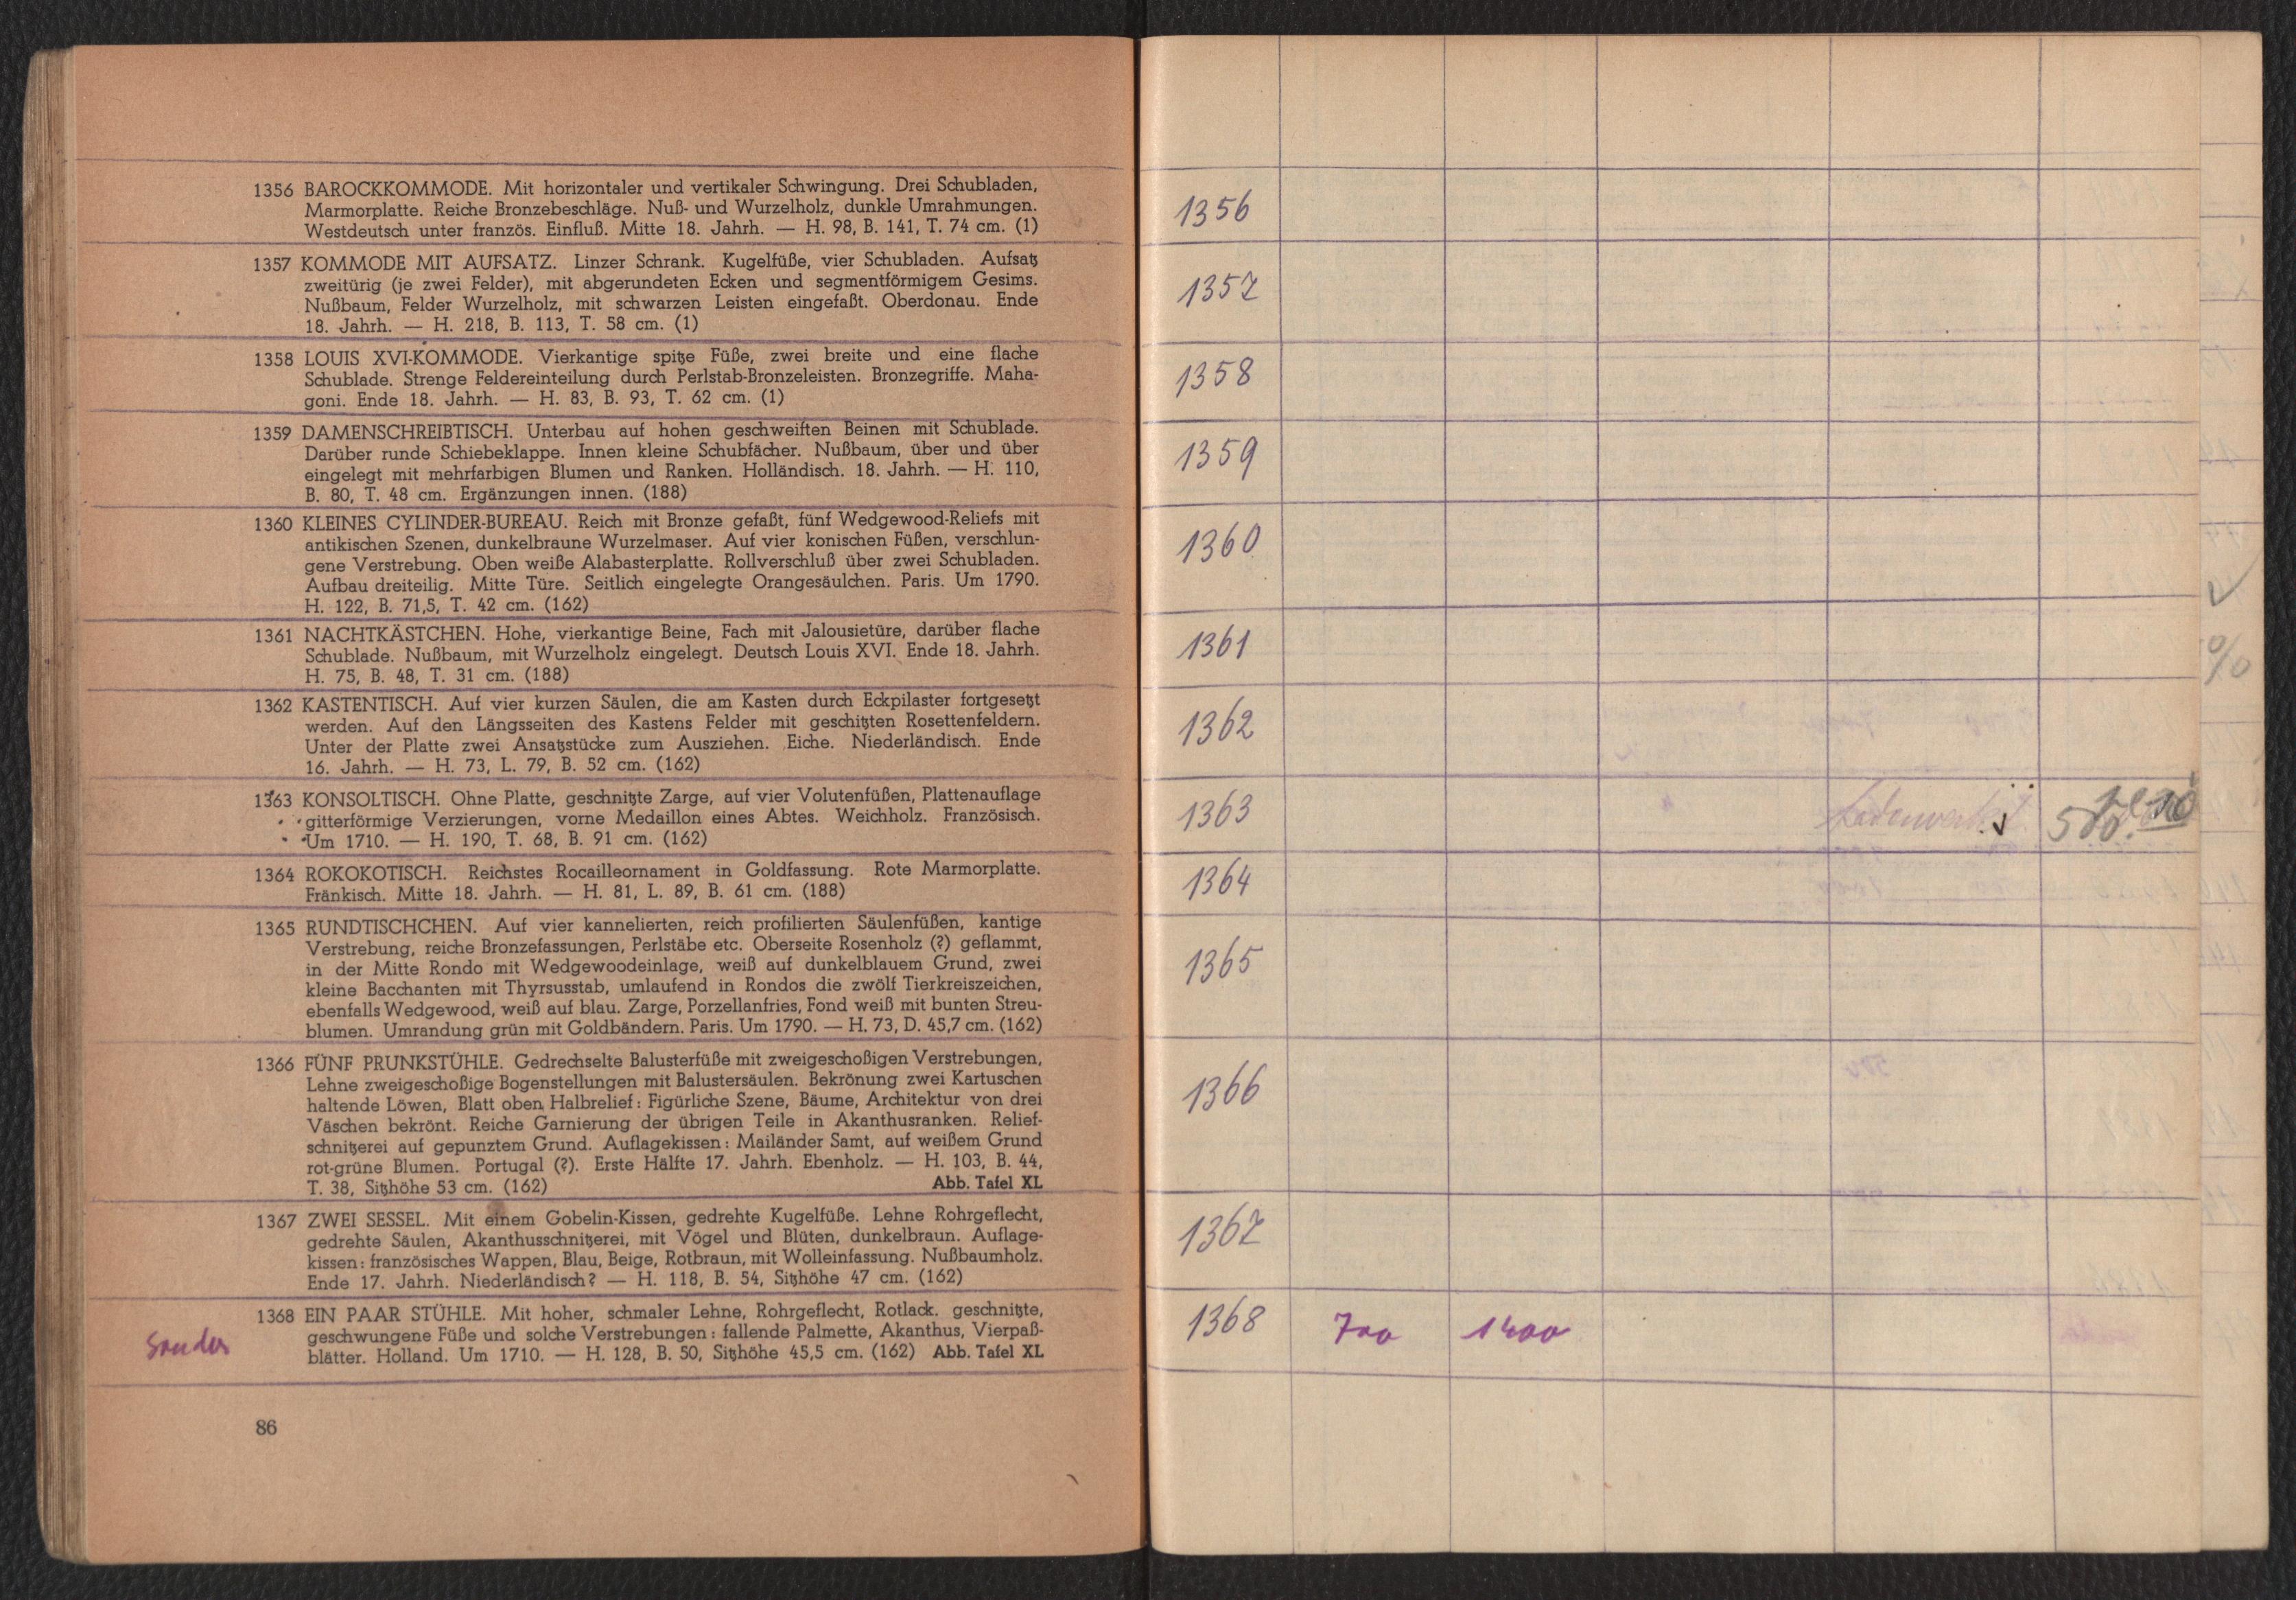 1356 BAROCKKOMMODE. Mit horizontaler und vertikaler Schwingung. Drei Schubladen,
Marmorplatte. Reiche Bronzebeschläge. Nuß- und Wurzelholz, dunkle Umrahmungen.
Westdeutsch unter französ. Einfluß. Mitte 18. Jahrh. — H. 98, B. 141, T. 74 cm. (1)
1357 KOMMODE MIT AUFSATZ. Linzer Schrank. Kugelfüße, vier Schubladen. Aufsatz
zweitürig (je zwei Felder), mit abgerundeten Ecken und segmentförmigem Gesims.
Nußbaum, Felder Wurzelholz, mit schwarzen Leisten eingefaßt. Oberdonau. Ende
18. Jahrh. — H. 218, B. 113, T. 58 cm. (1)
1358 LOUIS XVI-KOMMODE. Vierkantige spitze Füße, zwei breite und eine flache
Schublade. Strenge Feldereinteilung durch Perlstab-Bronzeleisten. Bronzegriffe. Maha-
goni. Ende 18. Jahrh. — H. 83, B. 93, T. 62 cm. (1)
1359 DAMENSCHREIBTISCH. Unterbau auf hohen geschweiften Beinen mit Schublade.
Darüber runde Schiebeklappe. Innen kleine Schubfächer. Nußbaum, über und über
eingelegt mit mehrfarbigen Blumen und Ranken. Holländisch. 18. Jahrh. — H. 110,
B. 80, T. 48 cm. Ergänzungen innen. (188)
1360 KLEINES CYLINDER-BUREAU. Reich mit Bronze gefaßt, fünf Wedgewood-Reliefs mit
antikischen Szenen, dunkelbraune Wurzelmaser. Auf vier konischen Füßen, verschlun-
gene Verstrebung. Oben weiße Alabasterplatte. Rollverschluß über zwei Schubladen.
Aufbau dreiteilig. Mitte Türe. Seitlich eingelegte Orangesäulchen. Paris. Um 1790.
H. 122, B. 71,5, T. 42 cm. (162)
1361 NACHTKÄSTCHEN. Hohe, vierkantige Beine, Fach mit Jalousietüre, darüber flache
Schublade. Nußbaum, mit Wurzelholz eingelegt. Deutsch Louis XVI. Ende 18. Jahrh.
H. 75, B. 48, T. 31 cm. (188)
1362 KASTENTISCH. Auf vier kurzen Säulen, die am Kasten durch Eckpilaster fortgesetzt
werden. Auf den Längsseiten des Kastens Felder mit geschitzten Rosettenfeldern.
Unter der Platte zwei Ansatzstücke zum Ausziehen. Eiche. Niederländisch. Ende
16. Jahrh. — H. 73, L. 79, B. 52 cm. (162)
1363 KONSOLTISCH. Ohne Platte, geschnitzte Zarge, auf vier Volutenfüßen, Plattenauflage
gitterförmige Verzierungen, vorne Medaillon eines Abtes. Weichholz. Französisch.
Um 1710. — H. 190, T. 68, B. 91 cm. (162)
1364 ROKOKOTISCH. Reichstes Rocailleornament in Goldfassung. Rote Marmorplatte.
Fränkisch. Mitte 18. Jahrh. — H. 81, L. 89, B. 61 cm. (188)
1365 RUNDTISCHCHEN. Auf vier kannelierten, reich profilierten Säulenfüßen, kantige
Verstrebung, reiche Bronzefassungen, Perlstäbe etc. Oberseite Rosenholz (?) geflammt,
in der Mitte Rondo mit Wedgewoodeinlage, weiß auf dunkelblauem Grund, zwei
kleine Bacchanten mit Thyrsusstab, umlaufend in Rondos die zwölf Tierkreiszeichen,
ebenfalls Wedgewood, weiß auf blau. Zarge, Porzellanfries, Fond weiß mit bunten Streu-
blumen. Umrandung grün mit Goldbändern. Paris. Um 1790. — H. 73, D. 45,7 cm. (162)
1366 FÜNF PRUNKSTÜHLE. Gedrechselte Balusterfüße mit zweigeschoßigen Verstrebungen,
Lehne zweigeschoßige Bogenstellungen mit Balustersäulen. Bekrönung zwei Kartuschen
haltende Löwen, Blatt oben Halbrelief: Figürliche Szene, Bäume, Architektur von drei
Väschen bekrönt. Reiche Garnierung der übrigen Teile in Akanthusranken. Relief-
schnitzerei auf gepunztem Grund. Auflagekissen: Mailänder Samt, auf weißem Grund
rot-grüne Blumen. Portugal (?). Erste Hälfte 17. Jahrh. Ebenholz. — H. 103, B. 44,
T. 38, Sitzhöhe 53 cm. (162) Abb. Tafel XL
1367 ZWEI SESSEL. Mit einem Gobelin-Kissen, gedrehte Kugelfüße. Lehne Rohrgeflecht,
gedrehte Säulen, Akanthusschnitzerei, mit Vögel und Blüten, dunkelbraun. Auflage-
kissen: französisches Wappen, Blau, Beige, Rotbraun, mit Wolleinfassung. Nußbaumholz.
Ende 17. Jahrh. Niederländisch? — H. 118, B. 54, Sitzhöhe 47 cm. (162)
1368 EIN PAAR STÜHLE. Mit hoher, schmaler Lehne, Rohrgeflecht, Rotlack. geschnitzte,
geschwungene Füße und solche Verstrebungen: fallende Palmette, Akanthus, Vierpaß-
blätter. Holland. Um 1710. — H. 128, B. 50, Sitzhöhe 45,5 cm. (162) Abb. Tafel XL
Sonder
86
1356
1357
1358
1359
1360
1361
1362
1363
1364
1365
1366
1367
1368 700 1400